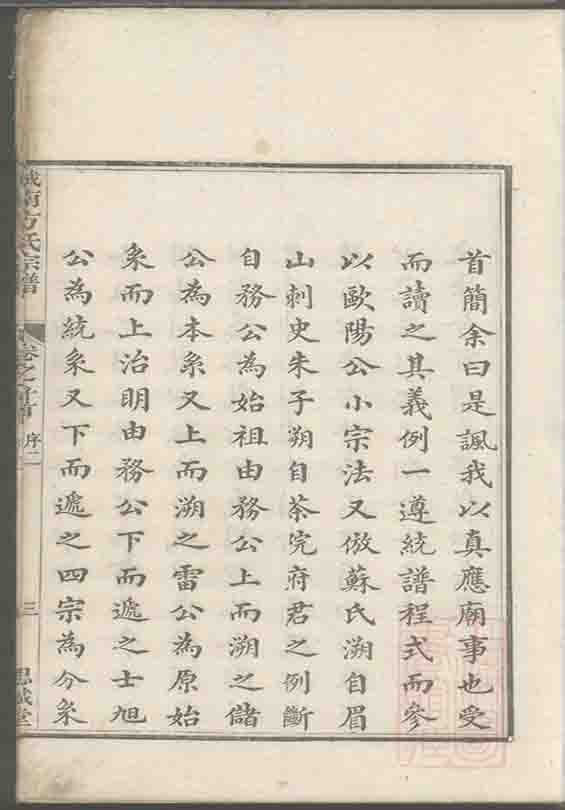 首簡余曰是諷我以真應廟事也受
而讀之其義例一遵統譜程式而參
以歐陽公小宗法又倣蘇氏溯自眉
山刺史朱子朔自茶完府君之例斷
自務公為始祖由務公上而溯之儲
公為本系又上而溯之雷公為原始
系而上治明由務公下而遞之士旭
公為統系又下而遞之四宗為分系
城南方氏宗譜
卷之首
序二
三
思誠堂